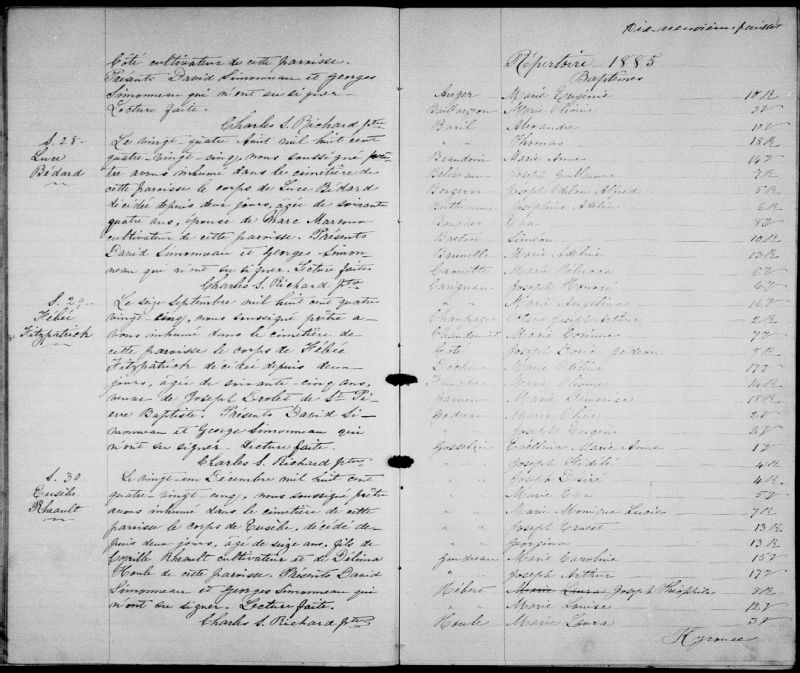 Côté cultivateur de cette paroisse.
Présents David Simonneau et Georges
Simonneau qui n'ont su signer.
Lecture faite.
Charles S. Richard Ptre
S. 28
Luce
Bédard
Le vingt-quatre Août mil huit cent
quatre-vingt-cinq, nous soussigné prê-
tre avons inhumé dans le cimetière de
cette paroisse le corps de Luce Bédard
décédée depuis deux jours, agée de soixante
quatre ans, épouse de Marc Marcoux
cultivateur de cette paroisse. Présents
David Simonneau et Georges Simon-
neau qui n'ont su signer. Lecture faite.
Charles S. Richard Ptre
S. 29
Hébée
Fitzpatrick
Le seize Septembre mil huit cent quatre
vingt-cinq, nous soussigné prêtre a-
vons inhumé dans le cimetière de
cette paroisse le corps de Hébée
Fitzpatrick décédée depuis deux
jours, agée de soixante-cinq ans,
veuve de Joseph Drolet de St Pi-
erre Baptiste. Présents David Si-
monneau et George Simonneau qui
n'ont su signer. Lecture faite.
Charles S. Richard Ptre
S. 30
Eusèbe
Rheault
Le vingt-un Décembre mil huit cent
quatre-vingt-cinq, nous soussigné prêtre
avons inhumé dans le cimetière de cette
paroisse le corps de Eusèbe, décédé de-
puis deux jours, agé de seize ans, fils de
Cyrille Rheault cultivateur et de Délima
Houle de cette paroisse. Présents David
Simonneau et Georges Simonneau qui
n'ont su signer. Lecture faite.
Charles S. Richard Ptre
Dix-neuvième feuillet
Répertoire 1885
Baptêmes
Auger Marie Eugénie 10 R
Marie 3 V
Baril Alexandre 10 V
" " Thomas 18 R
Beaudoin Marie Anne 14 V
Béliveau Joseph Guillaume 7 R
Bergeron Joseph Alfred
Berthiaume Joséphine
Boucher Eva 8 V
Breton Siméon 10 R
Brunette Marie Adeline 13 R
Carouette Marie Rebecca 5 V
Carignan Joseph Honoré 6 V
" " Marie Angelina 16 V
Champagne Joseph Arthur 2 R
Chandonnet Marie Corinne 7 V
Côté Joseph Gédéon 8 R
Marie 17 V
Marie 16 R
Marie 18 R
Marie Olive 2 V
" " Joseph Eugène
Gosselin Marie Anne 1 V
" " Joseph Fidèle 4 R
" " Joseph Désiré 4 R
" " Marie Eva 5 V
" " Marie Monique Lucie 7 R
" " Joseph Ernest 13 R
" " Georgina 13 R
Gaudreau Marie Caroline 15 V
" " Joseph Arthur 17 V
Hébert Marie Laura Joseph Théophile
" " Marie Louise 12 V
Houle Marie Laura 3 V